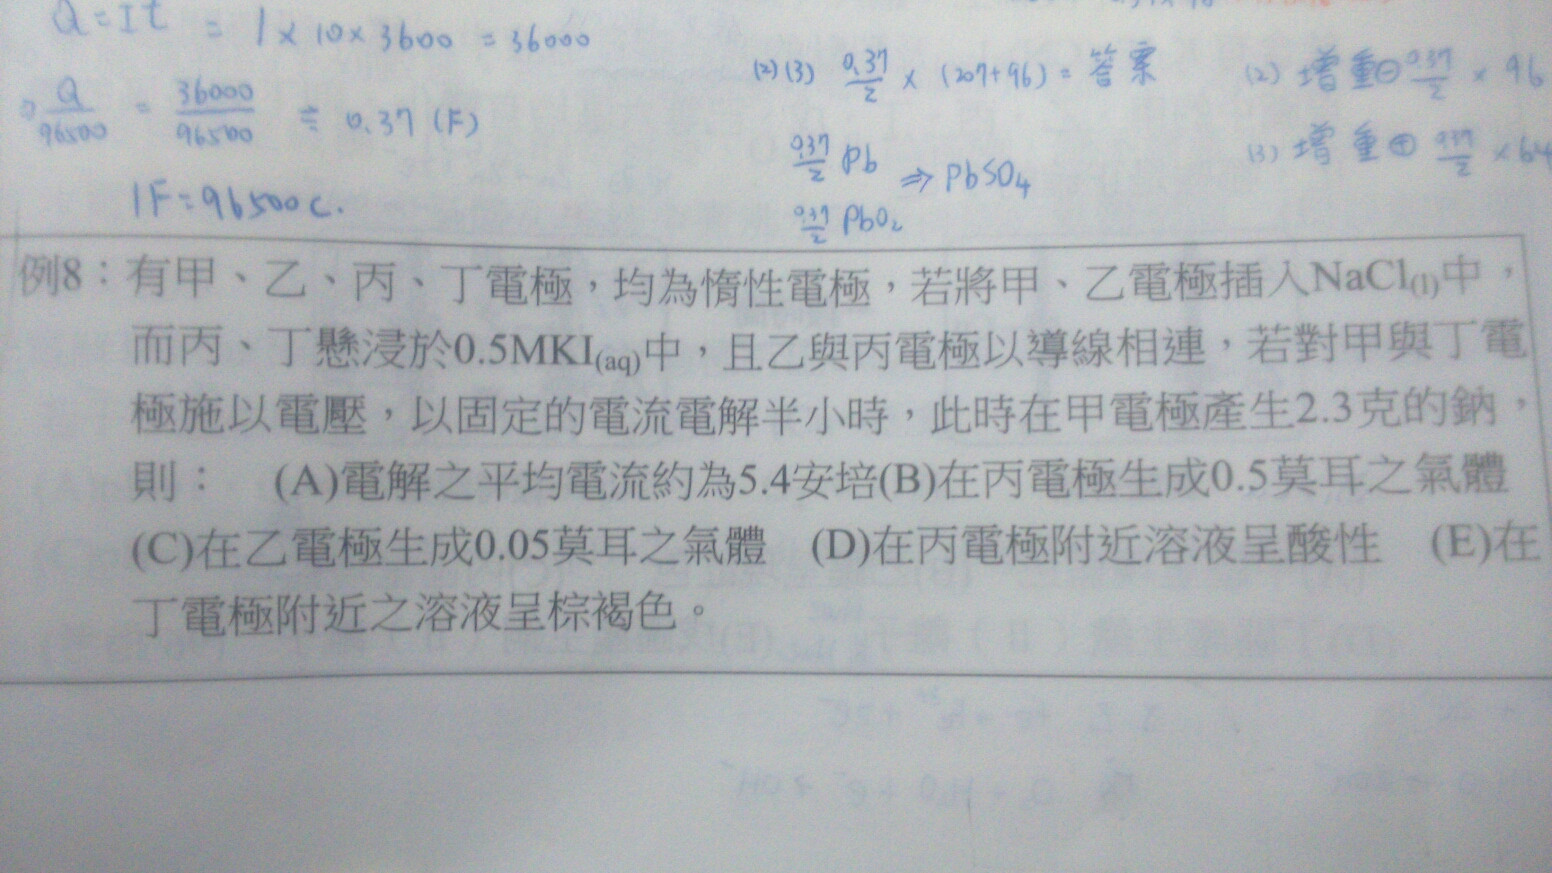 Q=It = 1×10×3600 = 36000
⇒ Q/96500 = 36000/96500 ≒ 0.37 (F)
1F=96500c.
(2)(3) 0.37/2 × (207+96) = 答案
0.37/2 Pb ⇒ PbSO₄
0.37/2 PbO₂
(2) 增重⊖ 0.37/2 × 96
(3) 增重⊕ 0.37/2 ×64
例8：有甲、乙、丙、丁電極，均為惰性電極，若將甲、乙電極插入NaCl(l)中，
而丙、丁懸浸於0.5MKI(aq)中，且乙與丙電極以導線相連，若對甲與丁電
極施以電壓，以固定的電流電解半小時，此時在甲電極產生2.3克的鈉，
則： (A)電解之平均電流約為5.4安培(B)在丙電極生成0.5莫耳之氣體
(C)在乙電極生成0.05莫耳之氣體 (D)在丙電極附近溶液呈酸性 (E)在
丁電極附近之溶液呈棕褐色。